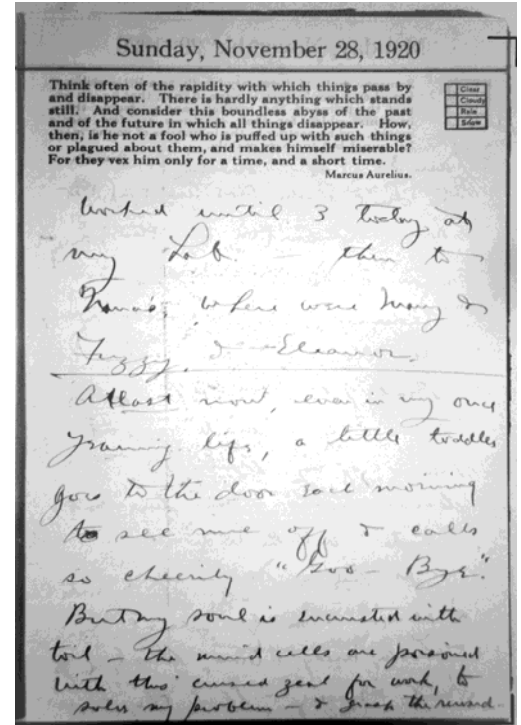 Sunday, November 28, 1920
Think often of the rapidity with which things pass by
and disappear. There is hardly anything which stands
still. And consider this boundless abyss of the past
and of the future in which all things disappear. How,
then, is he not a fool who is puffed up with such things
or plagued about them, and makes himself miserable?
For they vex him only for a time, and a short time.
Marcus Aurelius.
Clear
Cloudy
Rain
Snow
Worked until 3 today at
my Lab. — then to
where were Mary &
Fuzzy, & Eleanor.
At last now, even in my once
life, a little toddler
goes to the door each morning
to see me off & calls
so cheerily "Goo - Bye."
But my soul is encrusted with
toil — the mind cells are poisoned
with this cursed zeal for work, to
solve my problem — & grasp the